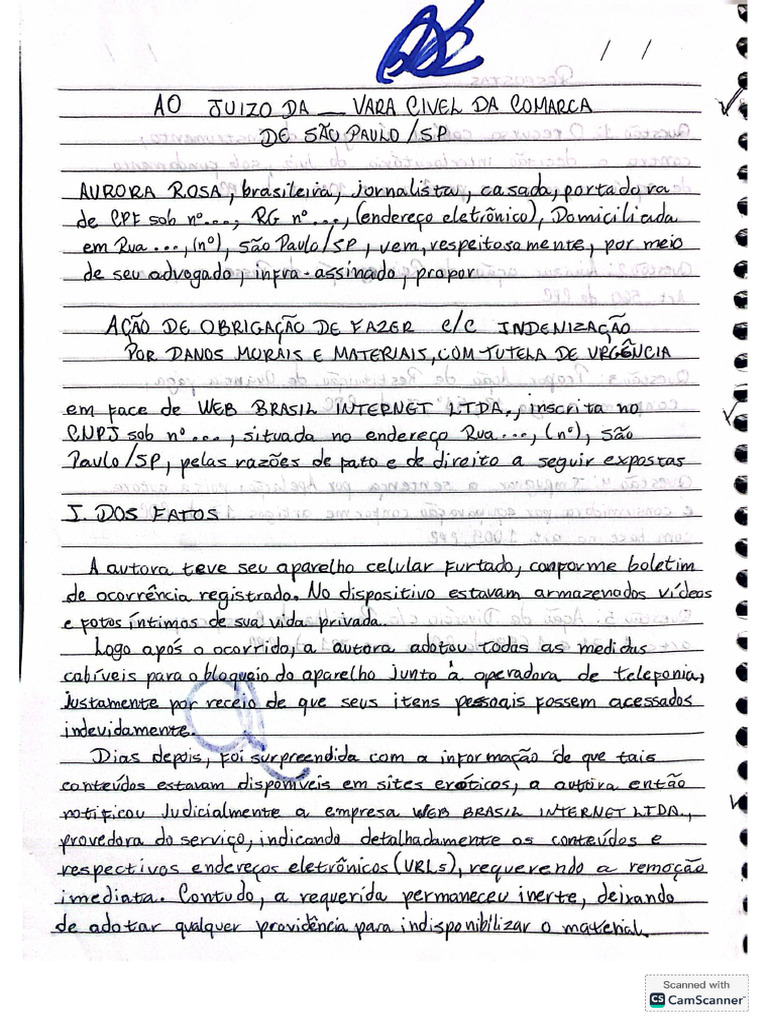 / /
AO JUIZO DA __ VARA CIVEL DA COMARCA
DE SÃO PAULO/SP
AURORA ROSA, brasileira, jornalista, casada, portadora
de CPF sob nº..., RG nº..., (endereço eletrônico), Domiciliada
em Rua ..., (nº), São Paulo/SP, vem, respeitosamente, por meio
de seu advogado, infra-assinado, propor
AÇÃO DE OBRIGAÇÃO DE FAZER C/C INDENIZAÇÃO
POR DANOS MORAIS E MATERIAIS, COM TUTELA DE URGÊNCIA
em face de WEB BRASIL INTERNET LTDA., inscrita no
CNPJ sob nº..., situada no endereço Rua..., (nº), São
Paulo/SP, pelas razões de fato e de direito a seguir expostas
I. DOS FATOS
A autora teve seu aparelho celular furtado, conforme boletim
de ocorrência registrado. No dispositivo estavam armazenados vídeos
e fotos íntimos de sua vida privada.
Logo após o ocorrido, a autora adotou todas as medidas
cabíveis para o bloquaio do aparelho junto à operadora de telefonia,
justamente por receio de que seus itens pessoais fossem acessados
indevidamente.
Dias depois, foi surpreendida com a informação de que tais
conteúdos estavam disponíveis em sites eróticos, a autora então
notificou Judicialmente a empresa WEB BRASIL INTERNET LTDA.,
provedora do serviço, indicando detalhadamente os conteúdos e
respectivos endereços eletrônicos (URLs), requerendo a remoção
imediata. Contudo, a requerida permaneceu inerte, deixando
de adotar qualquer providência para indisponibilizar o material.
Scanned with
CS CamScanner